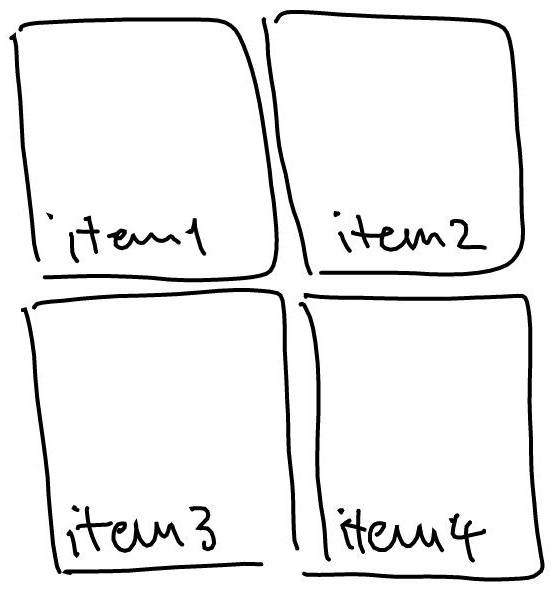 item1
item2
item3
item4